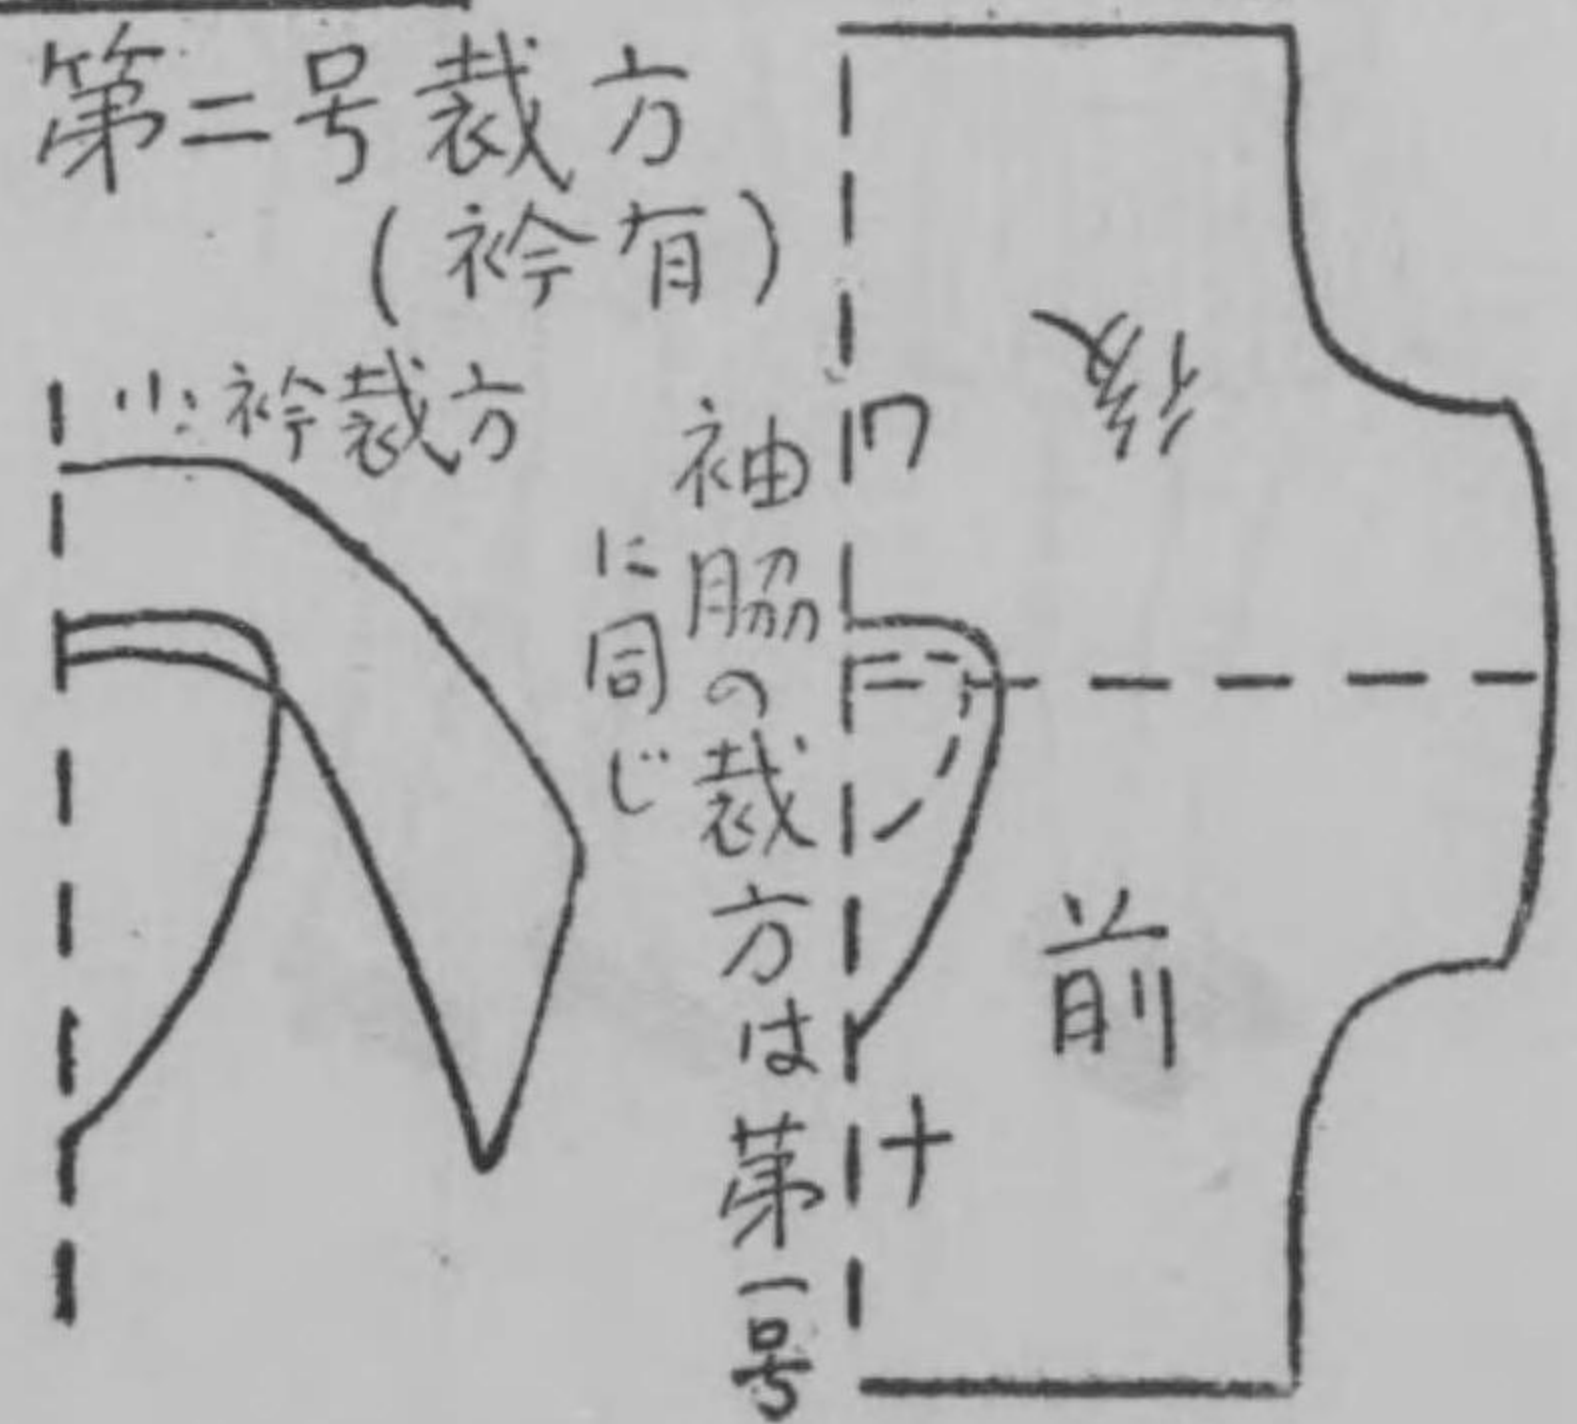 第二号裁方
(衿有)
衿裁方
袖脇の裁方は第一号
に同じ
後
前